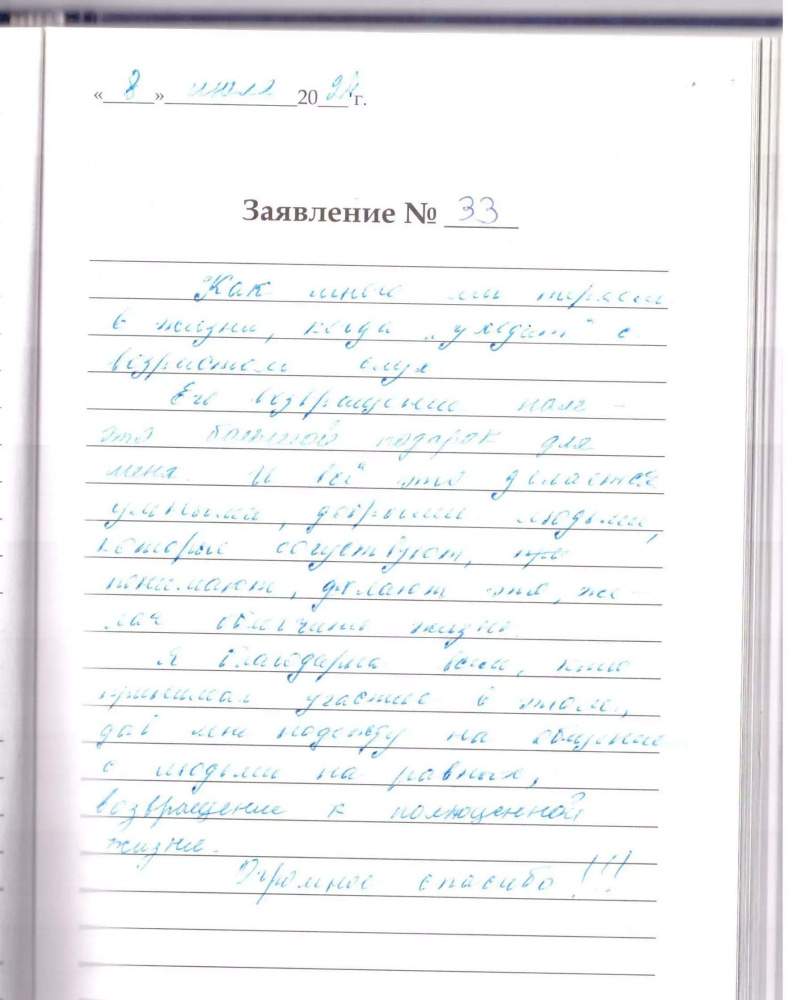 « 8 » июля 2021 г.
Заявление № 33
Как много мы теряем
в жизни, когда „уходит“ с
возрастом слух
Его возвращение нам –
это большой подарок для
меня. И всё это делается
умными, добрыми людьми,
которые сочувствуют,
понимают, делают это, же-
лая облегчить жизнь.
Я благодарна всем, кто
принимал участие в этом,
дав мне надежду на общение
с людьми на равных,
возвращение к полноценной
жизни.
Огромное спасибо!!!